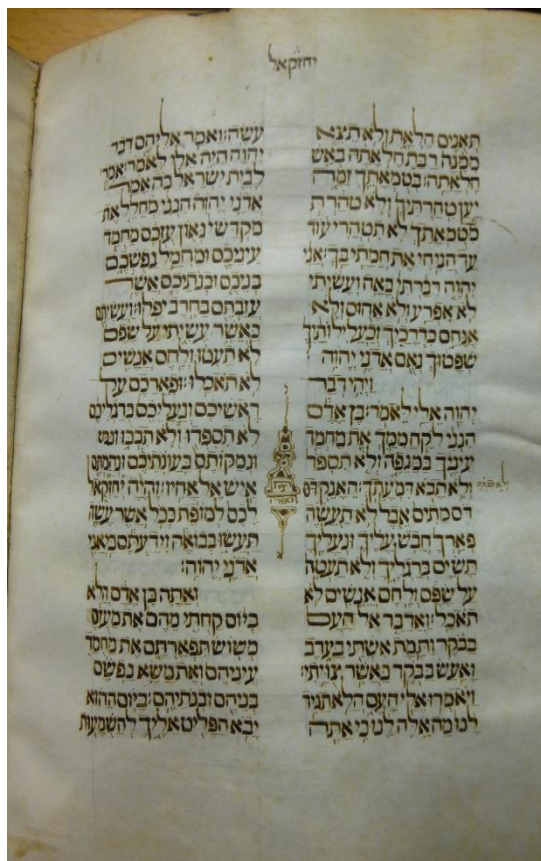 יחזקאל
תאנים הלאת ולא תצא
ממנה רבת חלאתה באש
חלאתה׃ בטמאתך זמה
יען טהרתיך ולא טהרת
מטמאתך לא תטהרי עוד
עד הניחי את חמתי בך׃ אני
יהוה דברתי באה ועשיתי
לא אפרע ולא אחוס ולא
אנחם כדרכיך וכעלילותיך
שפטוך נאם אדני יהוה
ויהי דבר
יהוה אלי לאמר׃ בן אדם
הנני לקח ממך את מחמד
עיניך במגפה ולא תספד
ולא תבא דמעתך׃ האנק דם
ולא תבכה
דם מתים אבל לא תעשה
פארך חבש עליך ונעליך
תשים ברגליך ולא תעטה
על שפם ולחם אנשים לא
תאכל׃ ואדבר אל העם
בבקר ותמת אשתי בערב
ואעש בבקר כאשר צויתי׃
ויאמרו אלי העם הלא תגיד
לנו מה אלה לנו כי אתה
עשה׃ ואמר אליהם דבר
יהוה היה אלי לאמר׃ אמר
לבית ישראל כה אמר
אדני יהוה הנני מחלל את
מקדשי גאון עזכם מחמד
עיניכם ומחמל נפשכם
בניכם ובנתיכם אשר
עזבתם בחרב יפלו׃ ועשיתם
כאשר עשיתי על שפם
לא תעטו ולחם אנשים
לא תאכלו׃ ופארכם על
ראשיכם ונעליכם ברגליכם
לא תספדו ולא תבכו ונמק
ונמקותם בעונתיכם ונהמתם
איש אל אחיו׃ והיה יחזקאל
לכם למופת ככל אשר עשה
תעשו בבואה וידעתם כי אני
אדני יהוה׃
ואתה בן אדם הלא
ביום קחתי מהם את מעוזם
משוש תפארתם את מחמד
עיניהם ואת משא נפשם
בניהם ובנתיהם׃ ביום ההוא
יבא הפליט אליך להשמעות